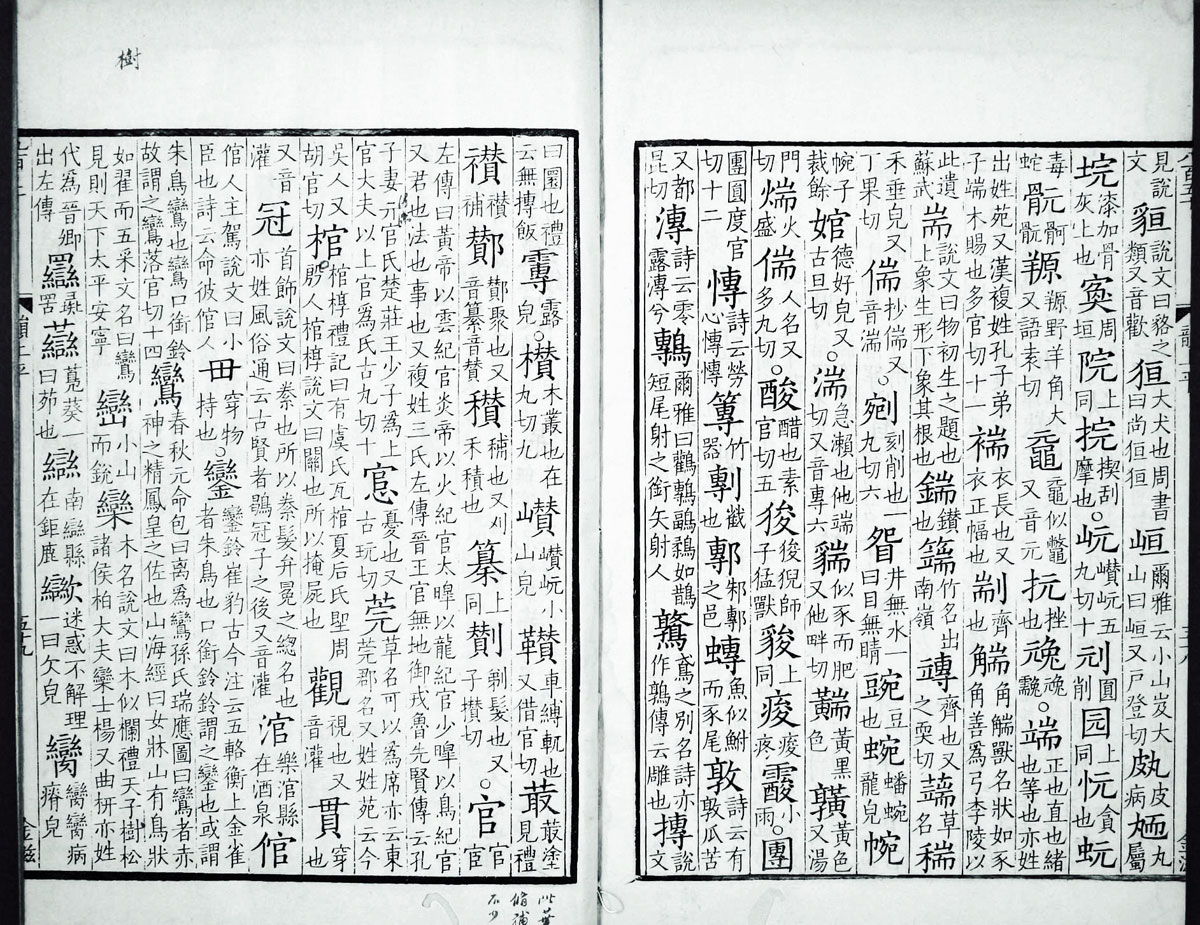 見說文 貆 說文曰貉之類又音歡 狟 大犬也周書曰尚狟狟 峘 爾雅云小山岌大山曰峘又戶登切 皮病 丸屬
垸 漆加骨灰上也 寏 周垣 院 上同 捖 揳刮摩也 ○岏 巑岏五丸切十 刓 圓削 园 上同 忨 貪也 蚖
毒蛇 羱 羱野羊角大又語袁切 黿 黿似鼈又音元 抏 挫也 ○端 正也直也緒也等也亦姓
出姓苑又漢複姓孔子弟子端木賜也多官切十一 褍 衣長也又衣正幅也 剬 齊也 䚪 角䚪獸名狀如豕角善爲弓李陵以
此遺蘇武 耑 說文曰物初生之題也上象生形下象其根也 鍴 鑽也 竹名出南嶺 齊也又之耎切 草名
禾垂皃又丁果切 偳 抄偳又音湍 ○剜 刻削也一丸切六 眢 井無水一曰目無睛 豌 豆也 蜿 蟠蜿龍皃 帵
帵子裁餘 婠 德好皃又古旦切 ○湍 急瀨也他端切又音專六 貒 似豕而肥又他畔切 黃黑色 黃色又湯
門切 煓 火盛 偳 人名又多丸切 ○酸 醋也素官切五 狻 狻猊師子猛獸 上同 痠 痠疼 小雨 ○團
團圓度官切十二 慱 詩云勞心慱慱 篿 竹器 剸 截也 鄟 邾鄟之邑 魚似鮒而豕尾 敦 詩云有敦瓜苦
又都昆切 漙 詩云零露漙兮 鷒 爾雅曰鸛鷒鶝鶔如鵲短尾射之銜矢射人 鷻 鳶之別名詩亦作鶉傳云雕也 摶 說文
樹
曰圜也禮云無摶飯 露皃 ○欑 木叢也在丸切九 巑 巑岏小山皃 車縛軛也又借官切 菆 菆塗見禮
補 酇 酇聚也又音纂音贊 穳 又刈禾積也 上同 劗 剃髮也又子攢切 ○官 官宦
左傳曰黃帝以雲紀官炎帝以火紀官太皥以龍紀官少皥以鳥紀官又君也法也事也又複姓三氏左傳晉王官無地御戎魯先賢傳云孔
子妻亓官氏楚莊王少子爲上官大夫以上官爲氏古丸切十 悹 憂也又古玩切 莞 草名可以爲席亦云東莞郡名又姓姓苑云今
吳人又胡官切 棺 棺椁禮記曰有虞氏瓦棺夏后氏堲周殷人棺椁說文曰關也所以掩屍也 觀 視也又音灌 貫 穿也
又音灌 冠 首飾說文曰絭也所以絭髮弁冕之總名也亦姓風俗通云古賢者鶡冠子之後又音灌 涫 樂涫縣在酒泉 倌
倌人主駕說文曰小臣也詩云命彼倌人 毌 穿物持也 ○鑾 鑾鈴崔豹古今注云五輅衡上金雀者朱鳥也口銜鈴鈴謂之鑾也或謂
朱鳥鸞也鸞口銜鈴故謂之鸞落官切十四 鸞 春秋元命包曰离爲鸞孫氏瑞應圖曰鸞者赤神之精鳳皇之佐也山海經曰女牀山有鳥狀
如翟而五采文名曰鸞見則天下太平安寧 巒 小山而銳 欒 木名說文曰木似欄禮天子樹松諸侯柏大夫欒士楊又曲枅亦姓
代爲晉卿出左傳 彘罟 虊 鳧葵一曰茆也 南䜌縣在鉅鹿 迷惑不解理一曰欠皃 臠 臠臠病瘠皃
五十九
金滋